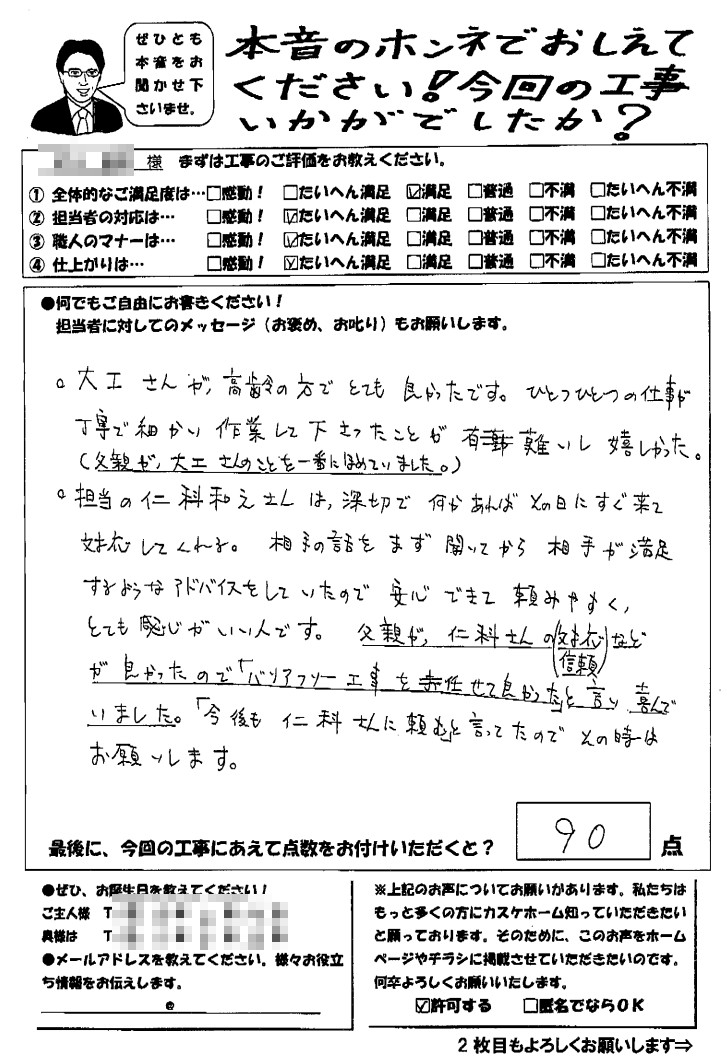 ぜひとも
本音をお
聞かせ下
さいませ。
本音のホンネでおしえて
ください!今回の工事
いかがでしたか?
様 まずは工事のご評価をお教えください。
① 全体的なご満足度は…□感動! □たいへん満足 ☑満足 □普通 □不満 □たいへん不満
② 担当者の対応は… □感動! ☑たいへん満足 □満足 □普通 □不満 □たいへん不満
③ 職人のマナーは… □感動! ☑たいへん満足 □満足 □普通 □不満 □たいへん不満
④ 仕上がりは… □感動! ☑たいへん満足 □満足 □普通 □不満 □たいへん不満
●何でもご自由にお書きください!
担当者に対してのメッセージ(お褒め、お叱り)もお願いします。
。大工さんが、高齢の方でとても良かったです。ひとつひとつの仕事が
丁寧で細かい作業して下さったことが 難いし嬉しかった。
(父親が、大工さんのことを一番にほめていました。)
。担当の仁科和えさんは、深切で何かあればその日にすぐ来て
対応してくれる。相手の話をまず聞いてから相手が満足
するようなアドバイスをしていたので安心できて頼みやすく、
とても感じがいい人です。父親が、仁科さんの(対応)など
(信頼)
が良かったので「バリアフリー工事を任せて良かった」と言い喜んで
いました。「今後も仁科さんに頼む」と言ってたのでその時は
お願いします。
最後に、今回の工事にあえて点数をお付けいただくと? 90 点
●ぜひ、お誕生日を教えてください!
ご主人様 T
奥様は T
●メールアドレスを教えてください。様々お役立
ち情報をお伝えします。
@
※上記のお声についてお願いがあります。私たちは
もっと多くの方にカスケホーム知っていただきたい
と願っております。そのために、このお声をホーム
ページやチラシに掲載させていただきたいのです。
何卒よろしくお願いいたします。
☑許可する □匿名でならOK
2枚目もよろしくお願いします⇒